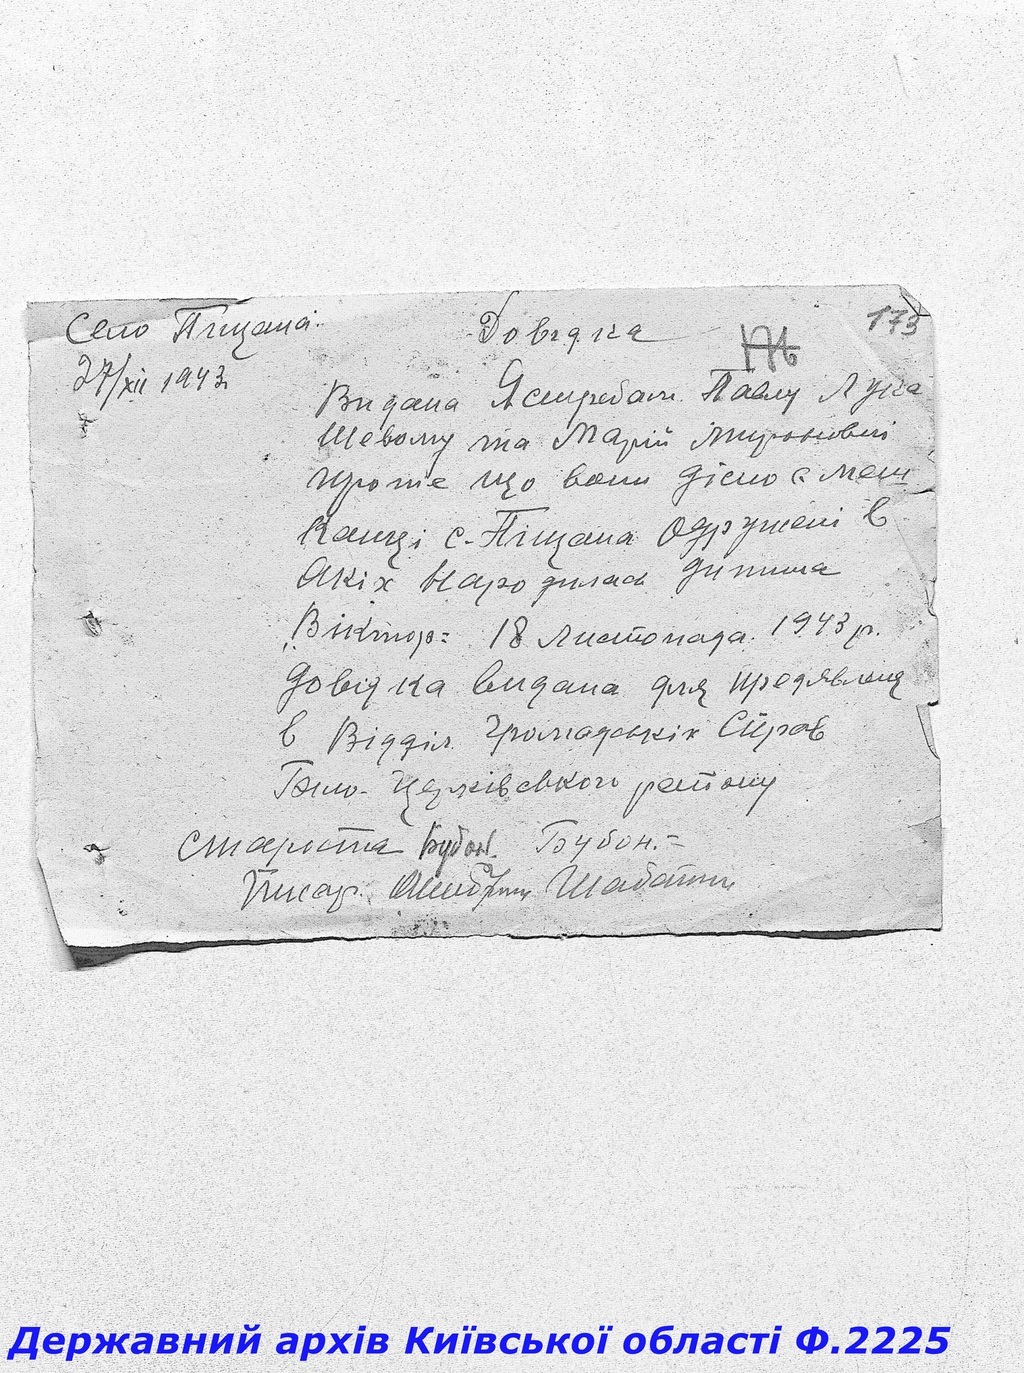 Село Піщана.
Довідка
173
176
27/XII 1943
Видана Ястребам Павлу Лука
шевому та Марій Мироновні
проте що вони дісно є меш
канці с. Піщана Одружені в
Акіх Народилась Дитина
Віктор= 18 Листопада 1943 р.
Довідка видана для предявленя
в Відділ Громадськіх Справ
Біло-Церківського району
Староста Бубон. Бубон.=
Писар. Шабатин
Державний архів Київської області Ф.2225